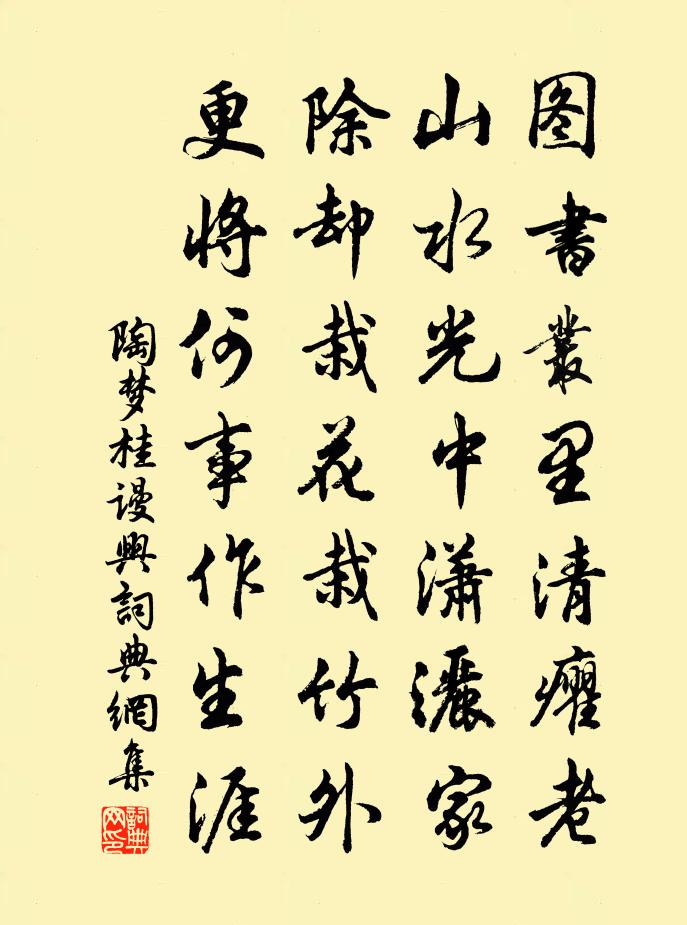 图書叢里清癯老
山水光中潇灑家
除却栽花栽竹外
更將何事作生涯
陶梦桂谩興詞典網集
詞典网印